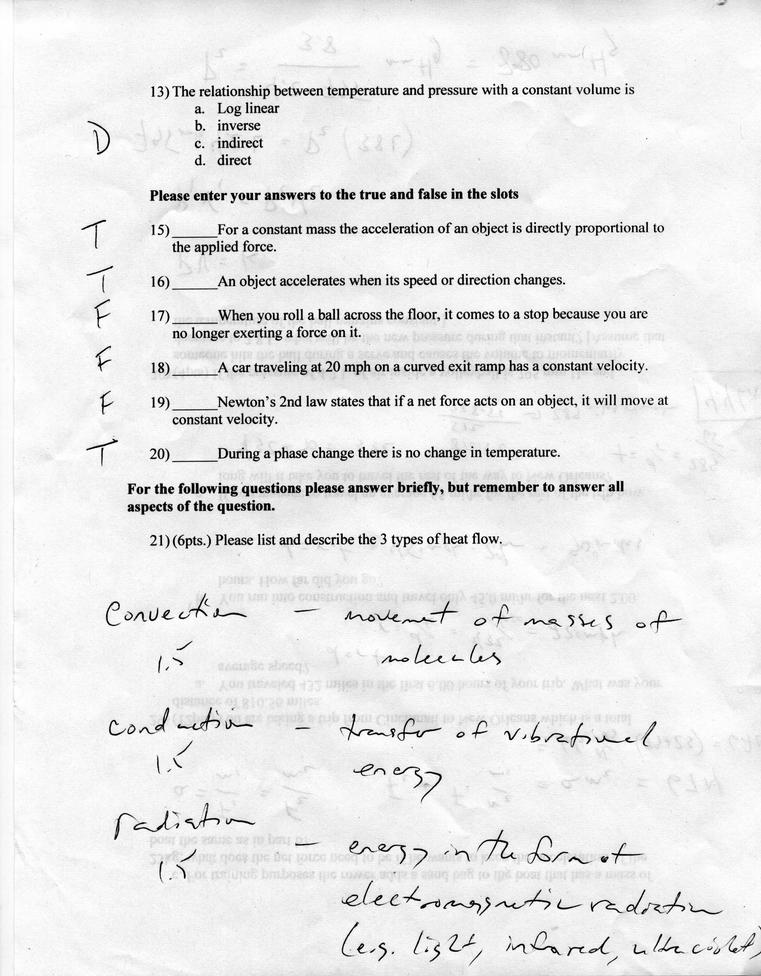 13) The relationship between temperature and pressure with a constant volume is
a. Log linear
b. inverse
D
c. indirect
d. direct
Please enter your answers to the true and false in the slots
T 15)______For a constant mass the acceleration of an object is directly proportional to
the applied force.
T 16)______An object accelerates when its speed or direction changes.
F 17)______When you roll a ball across the floor, it comes to a stop because you are
no longer exerting a force on it.
F 18)______A car traveling at 20 mph on a curved exit ramp has a constant velocity.
F 19)______Newton's 2nd law states that if a net force acts on an object, it will move at
constant velocity.
T 20)______During a phase change there is no change in temperature.
For the following questions please answer briefly, but remember to answer all
aspects of the question.
21) (6pts.) Please list and describe the 3 types of heat flow.
Convection – movement of masses of
1.5 molecules
conduction – transfer of vibrational
1.5 energy
radiation
– energy in the form of
1.5
electromagnetic radiation
(e.g. light, infrared, ultraviolet)